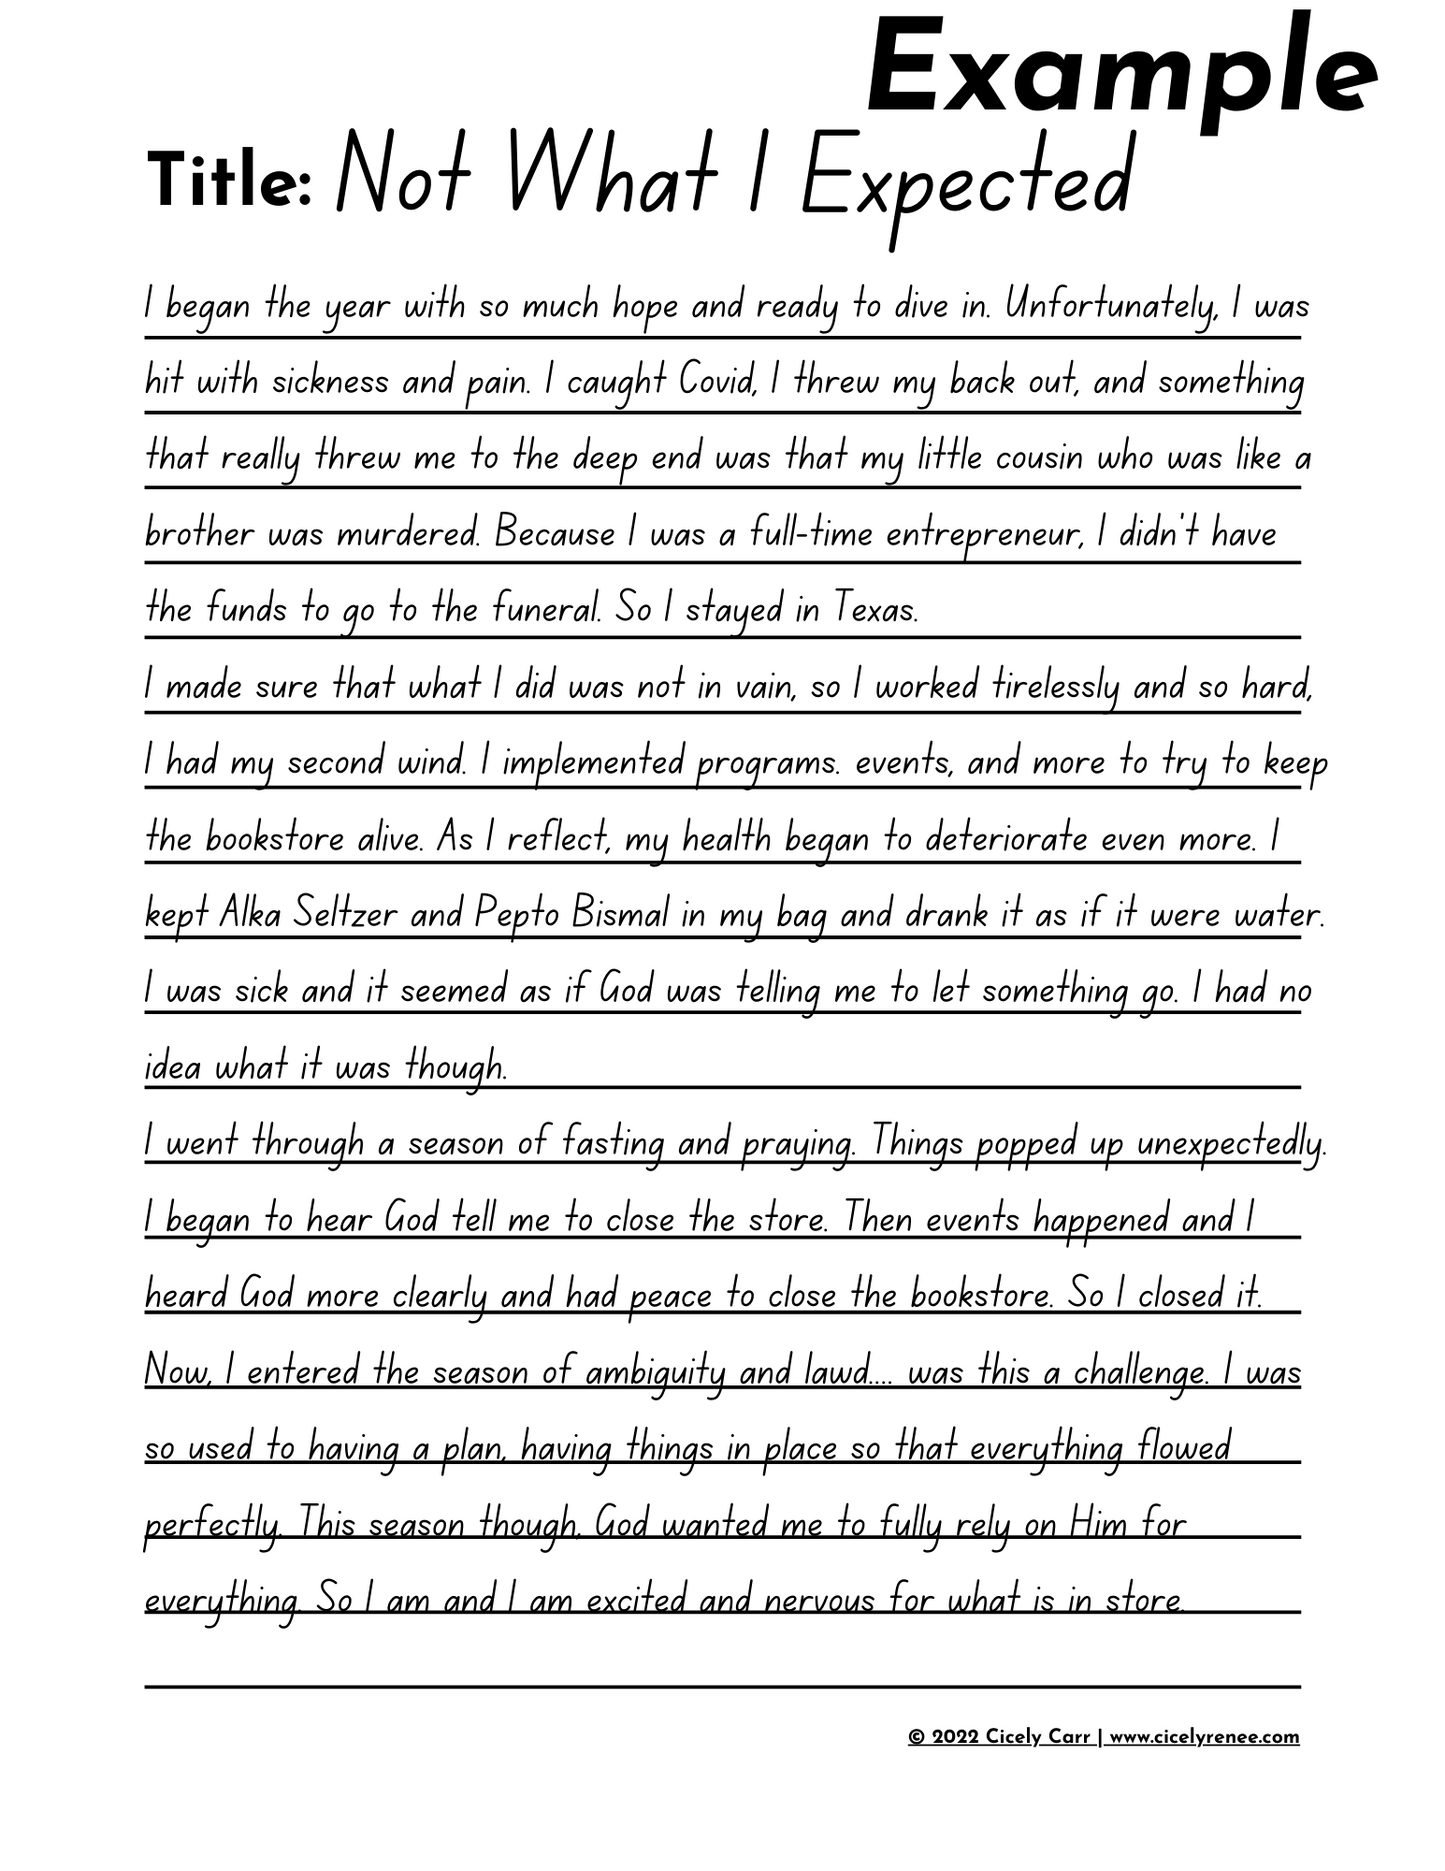 Example
Title: Not What I Expected
I began the year with so much hope and ready to dive in. Unfortunately, I was
hit with sickness and pain. I caught Covid, I threw my back out, and something
that really threw me to the deep end was that my little cousin who was like a
brother was murdered. Because I was a full-time entrepreneur, I didn't have
the funds to go to the funeral. So I stayed in Texas.
I made sure that what I did was not in vain, so I worked tirelessly and so hard,
I had my second wind. I implemented programs. events, and more to try to keep
the bookstore alive. As I reflect, my health began to deteriorate even more. I
kept Alka Seltzer and Pepto Bismal in my bag and drank it as if it were water.
I was sick and it seemed as if God was telling me to let something go. I had no
idea what it was though.
I went through a season of fasting and praying. Things popped up unexpectedly.
I began to hear God tell me to close the store. Then events happened and I
heard God more clearly and had peace to close the bookstore. So I closed it.
Now, I entered the season of ambiguity and lawd.... was this a challenge. I was
so used to having a plan, having things in place so that everything flowed
perfectly. This season though, God wanted me to fully rely on Him for
everything. So I am and I am excited and nervous for what is in store.
© 2022 Cicely Carr | www.cicelyrenee.com